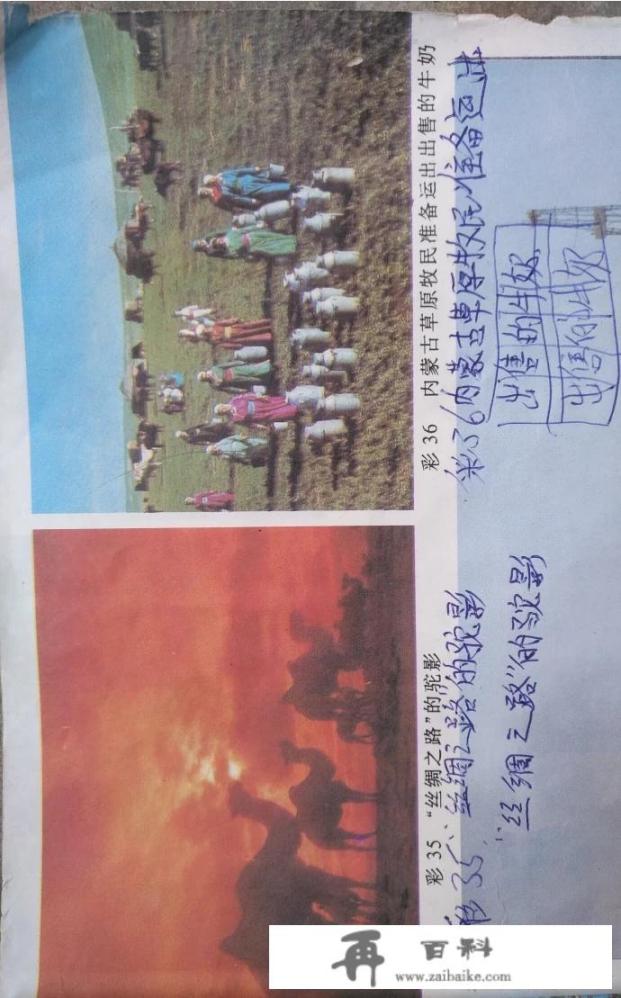 彩35 “丝绸之路”的驼影
彩36 内蒙古草原牧民准备运出出售的牛奶
彩35“丝绸之路”的驼影
彩36内蒙古草原牧民准备运出
“丝绸之路”的驼影
出售的牛奶
出售的牛奶
再百科
www.zaibaike.com